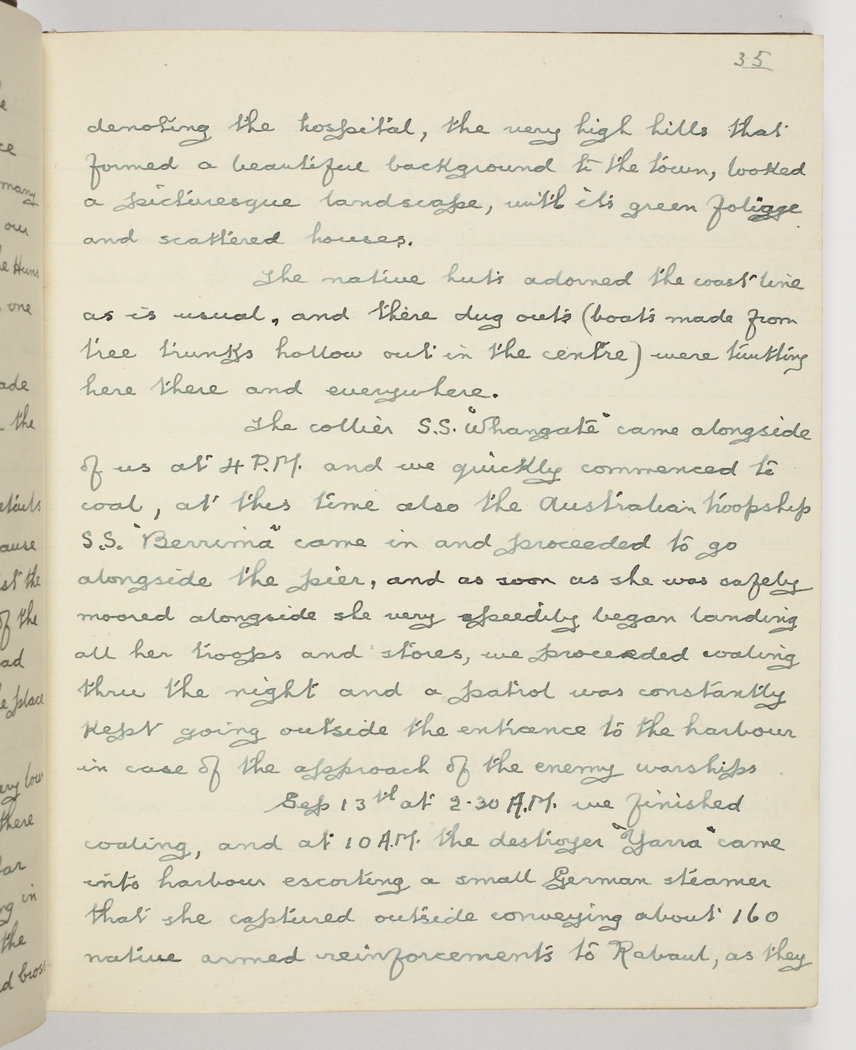 35
denoting the hospital, the very high hills that
formed a beautiful background to the town, looked
a picturesque landscape, with its green foliage
and scattered houses.
The native huts adorned the coast line
as is usual, and there dug outs (boats made from
tree trunks hollow out in the centre) were
here there and everywhere.
The collier S.S. "Whangate" came alongside
of us at 4 P.M. and we quickly commenced to
coal, at this time also the Australian troopship
S.S. "Berrima" came in and proceeded to go
alongside the pier, and as soon as she was safely
moored alongside she very speedily began landing
all her troops and stores, we proceeded coaling
thru the night and a patrol was constantly
kept going outside the entrance to the harbour
in case of the approach of the enemy warships
Sep 13th at 2-30 A.M. we finished
coaling, and at 10 A.M. the destroyer "Yarra" came
into harbour escorting a small German steamer
that she captured outside conveying about 160
native armed reinforcements to Rabaul, as they
many
our
e Huns
one
ade
the
etails
ause
st the
of the
ad
e place
ery low
there
far
ng in
the